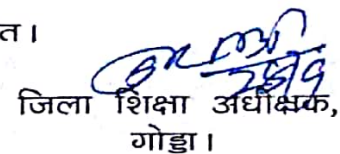 त।
जिला शिक्षा अधीक्षक,
गोड्डा।